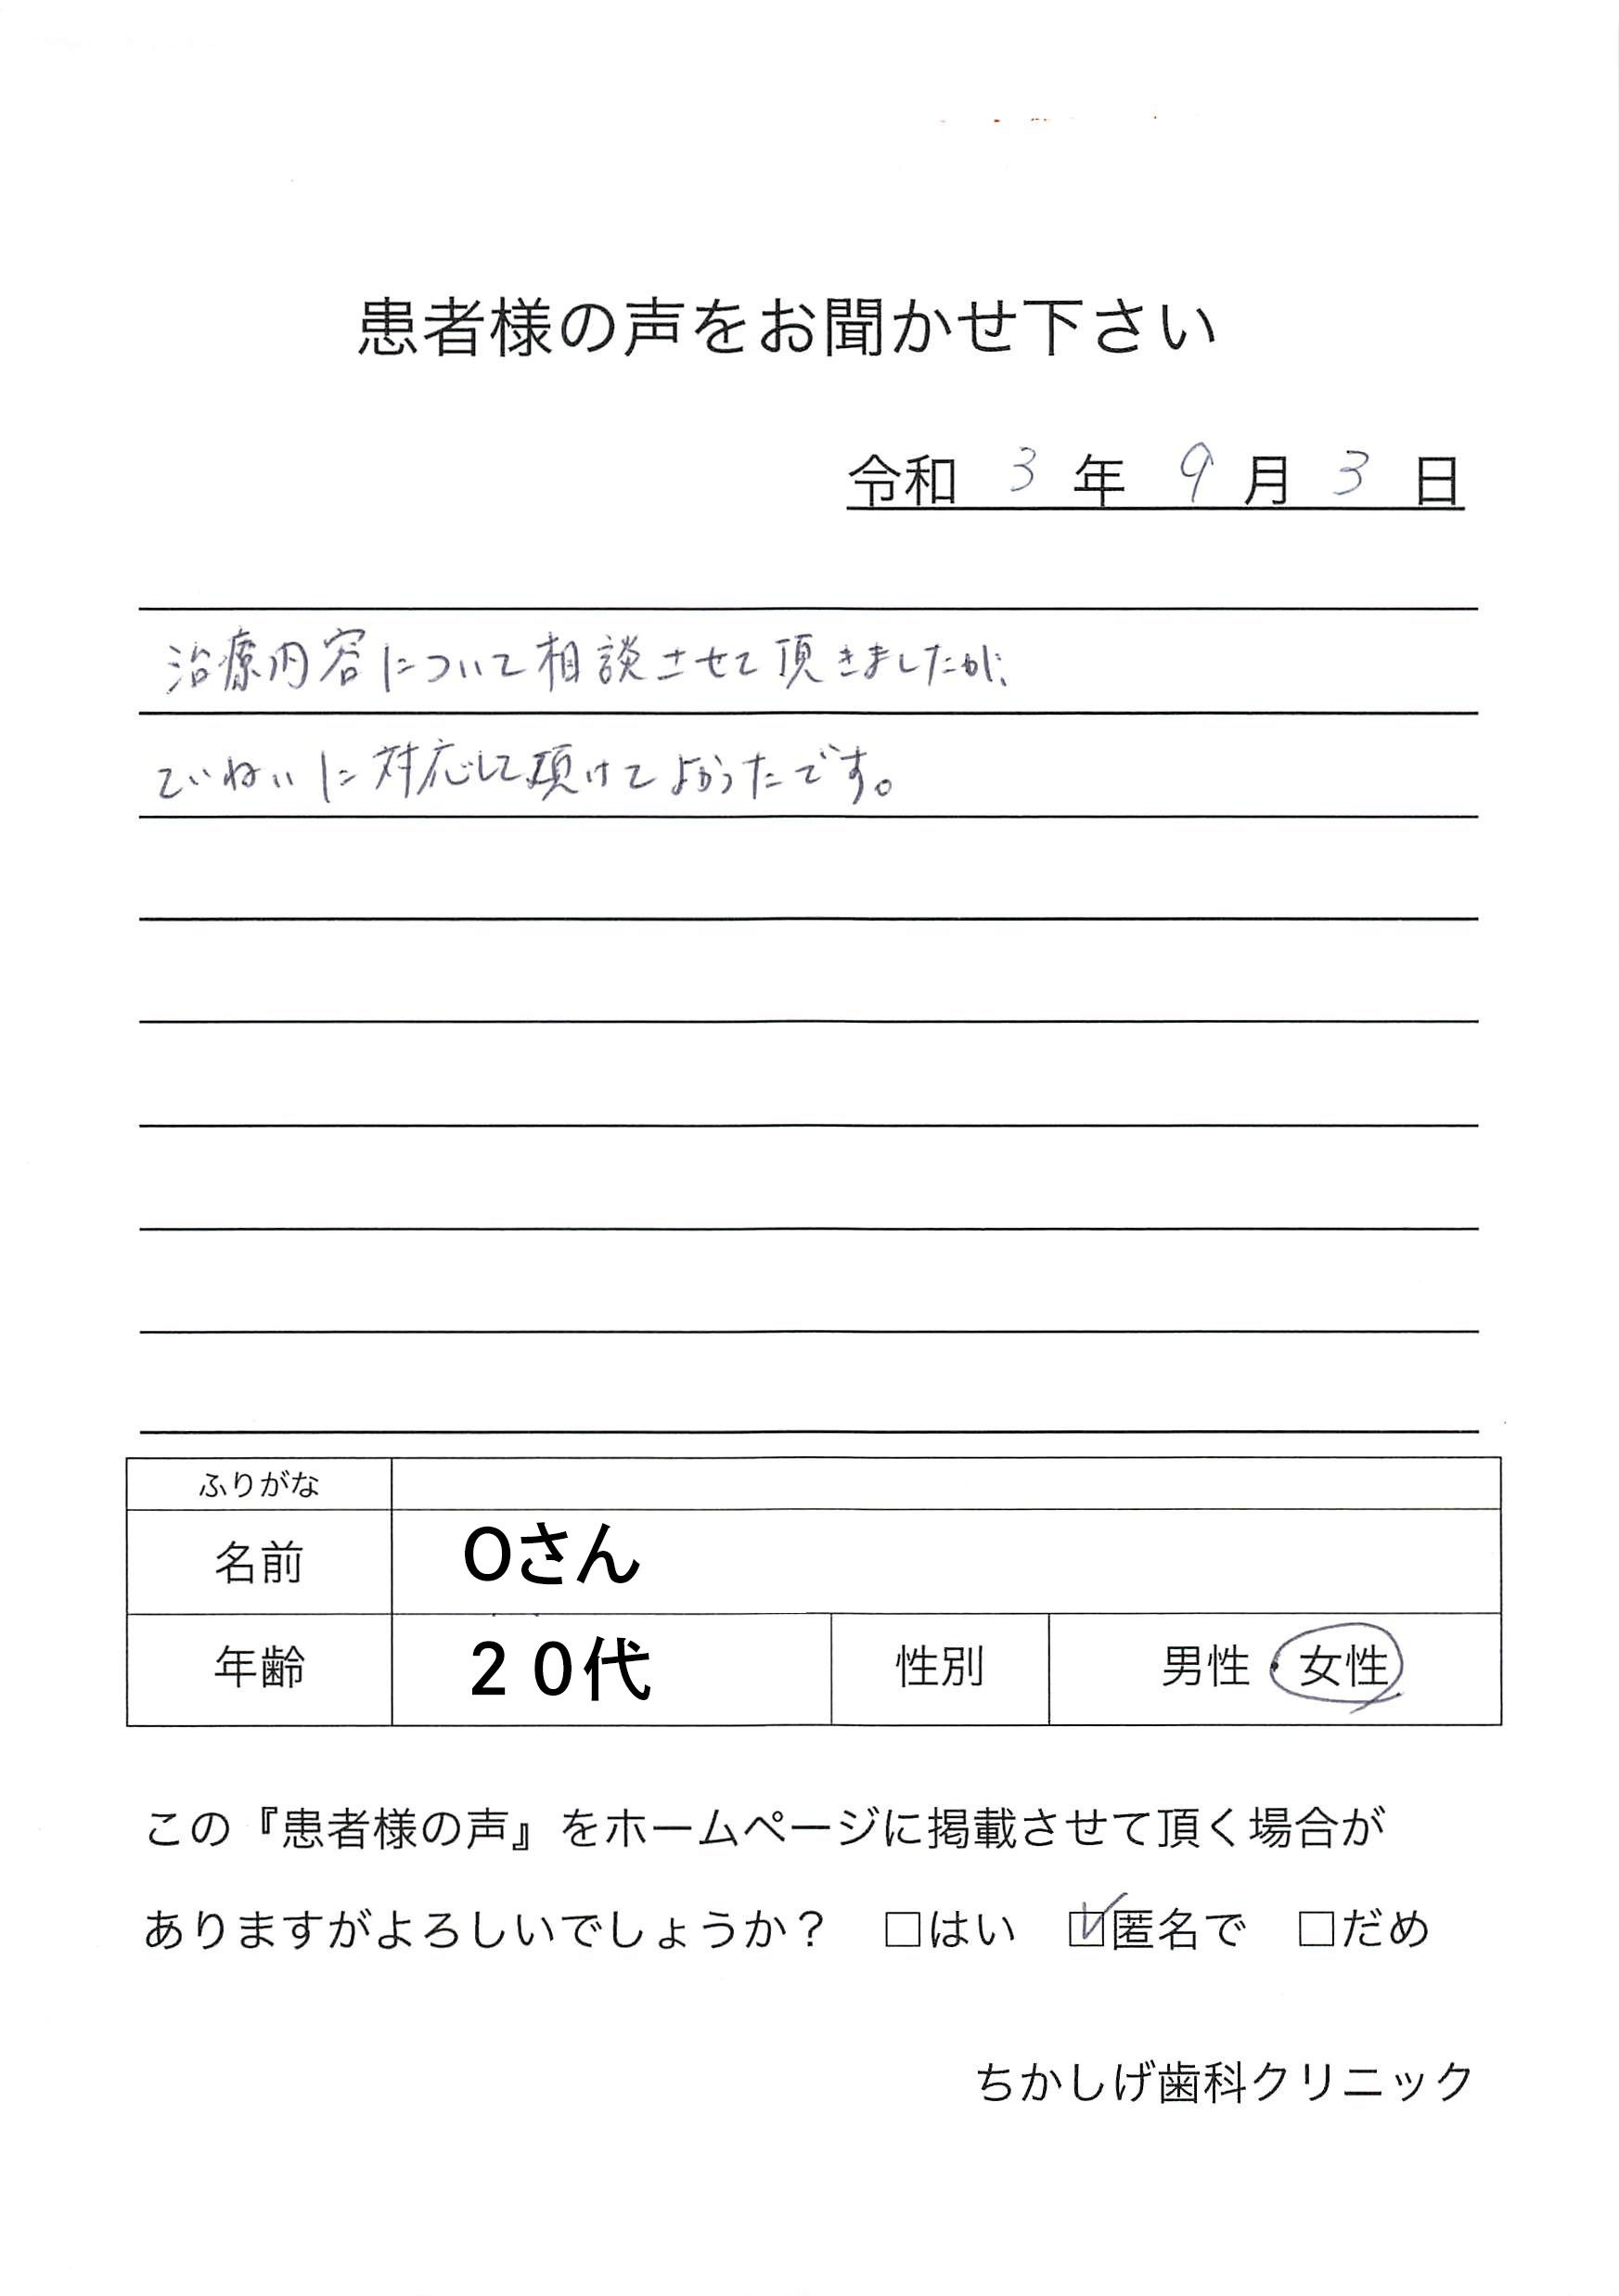 患者様の声をお聞かせ下さい
令和 3 年 9 月 3 日
治療内容について相談させて頂きましたが、
ていねいに対応して頂けてよかったです。
ふりがな
名前 Oさん
年齢 20代 性別 男性・女性
この『患者様の声』をホームページに掲載させて頂く場合が
ありますがよろしいでしょうか？ □はい ☑匿名で □だめ
ちかしげ歯科クリニック